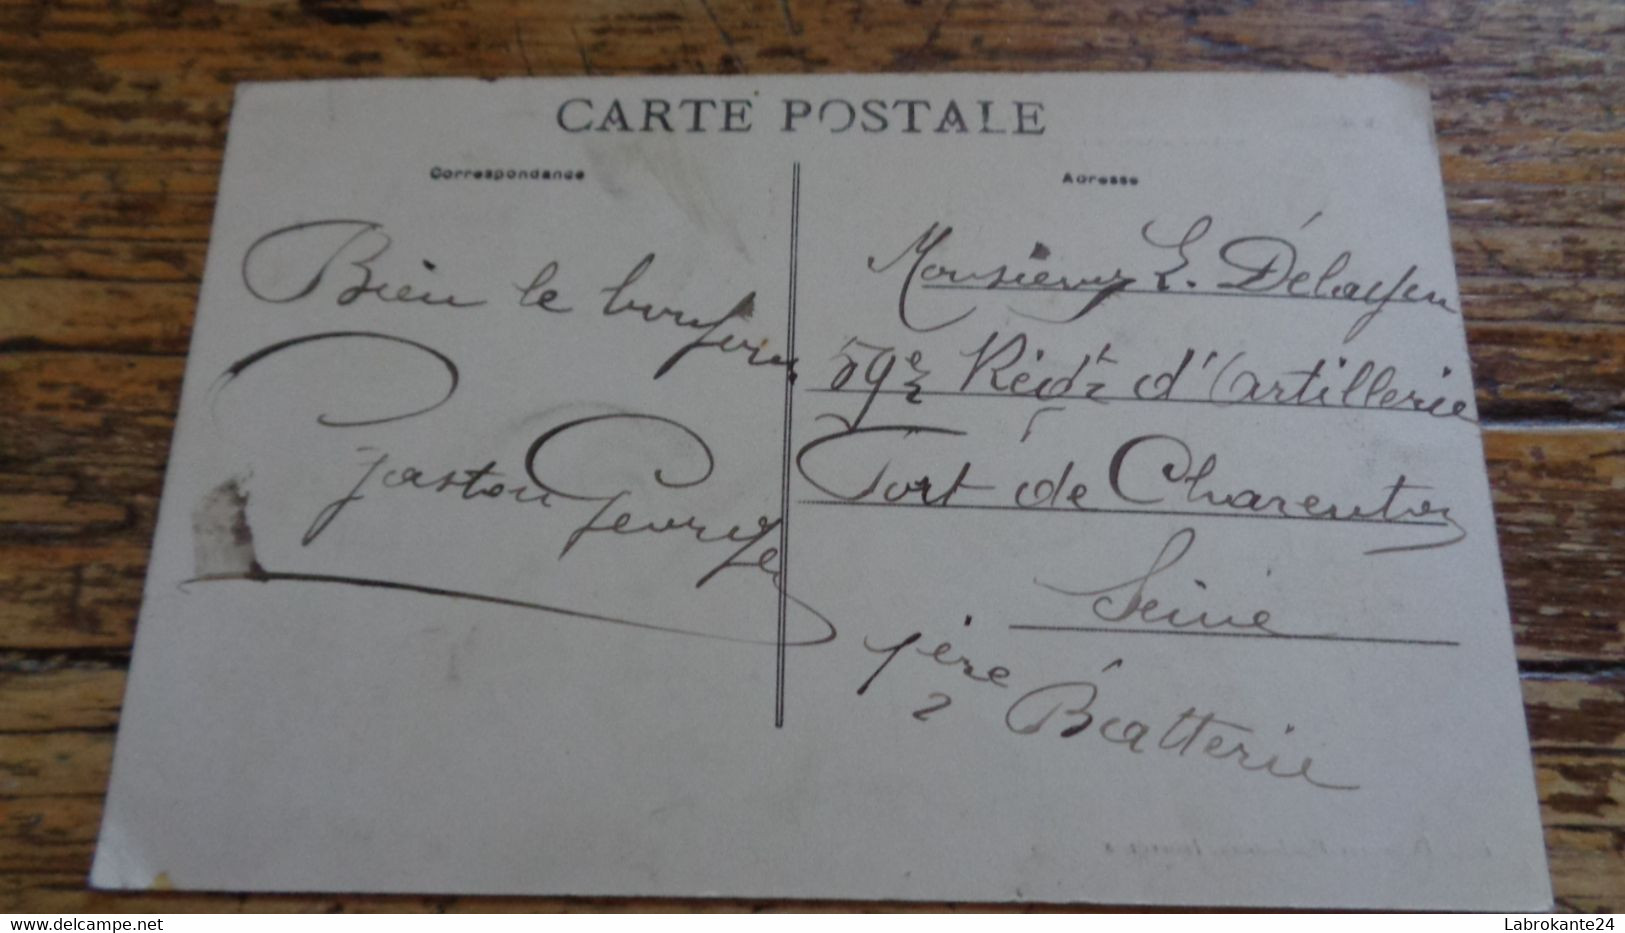 CARTE POSTALE
Correspondance
Adresse
Bien le bonjour
Gaston
Monsieur E. Délayen
59e Régt d'artillerie
Fort de Charenton
Seine
1ère Batterie
www.delcampe.net
Labrokante24